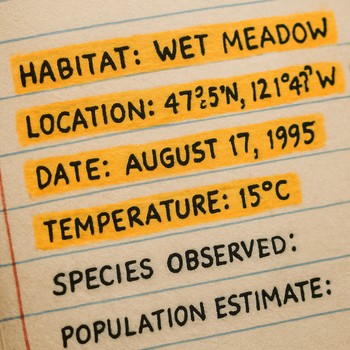 HABITAT: WET MEADOW
LOCATION:
DATE: AUGUST 17, 1995
TEMPERATURE: 15°C
SPECIES OBSERVED:
POPULATION ESTIMATE: